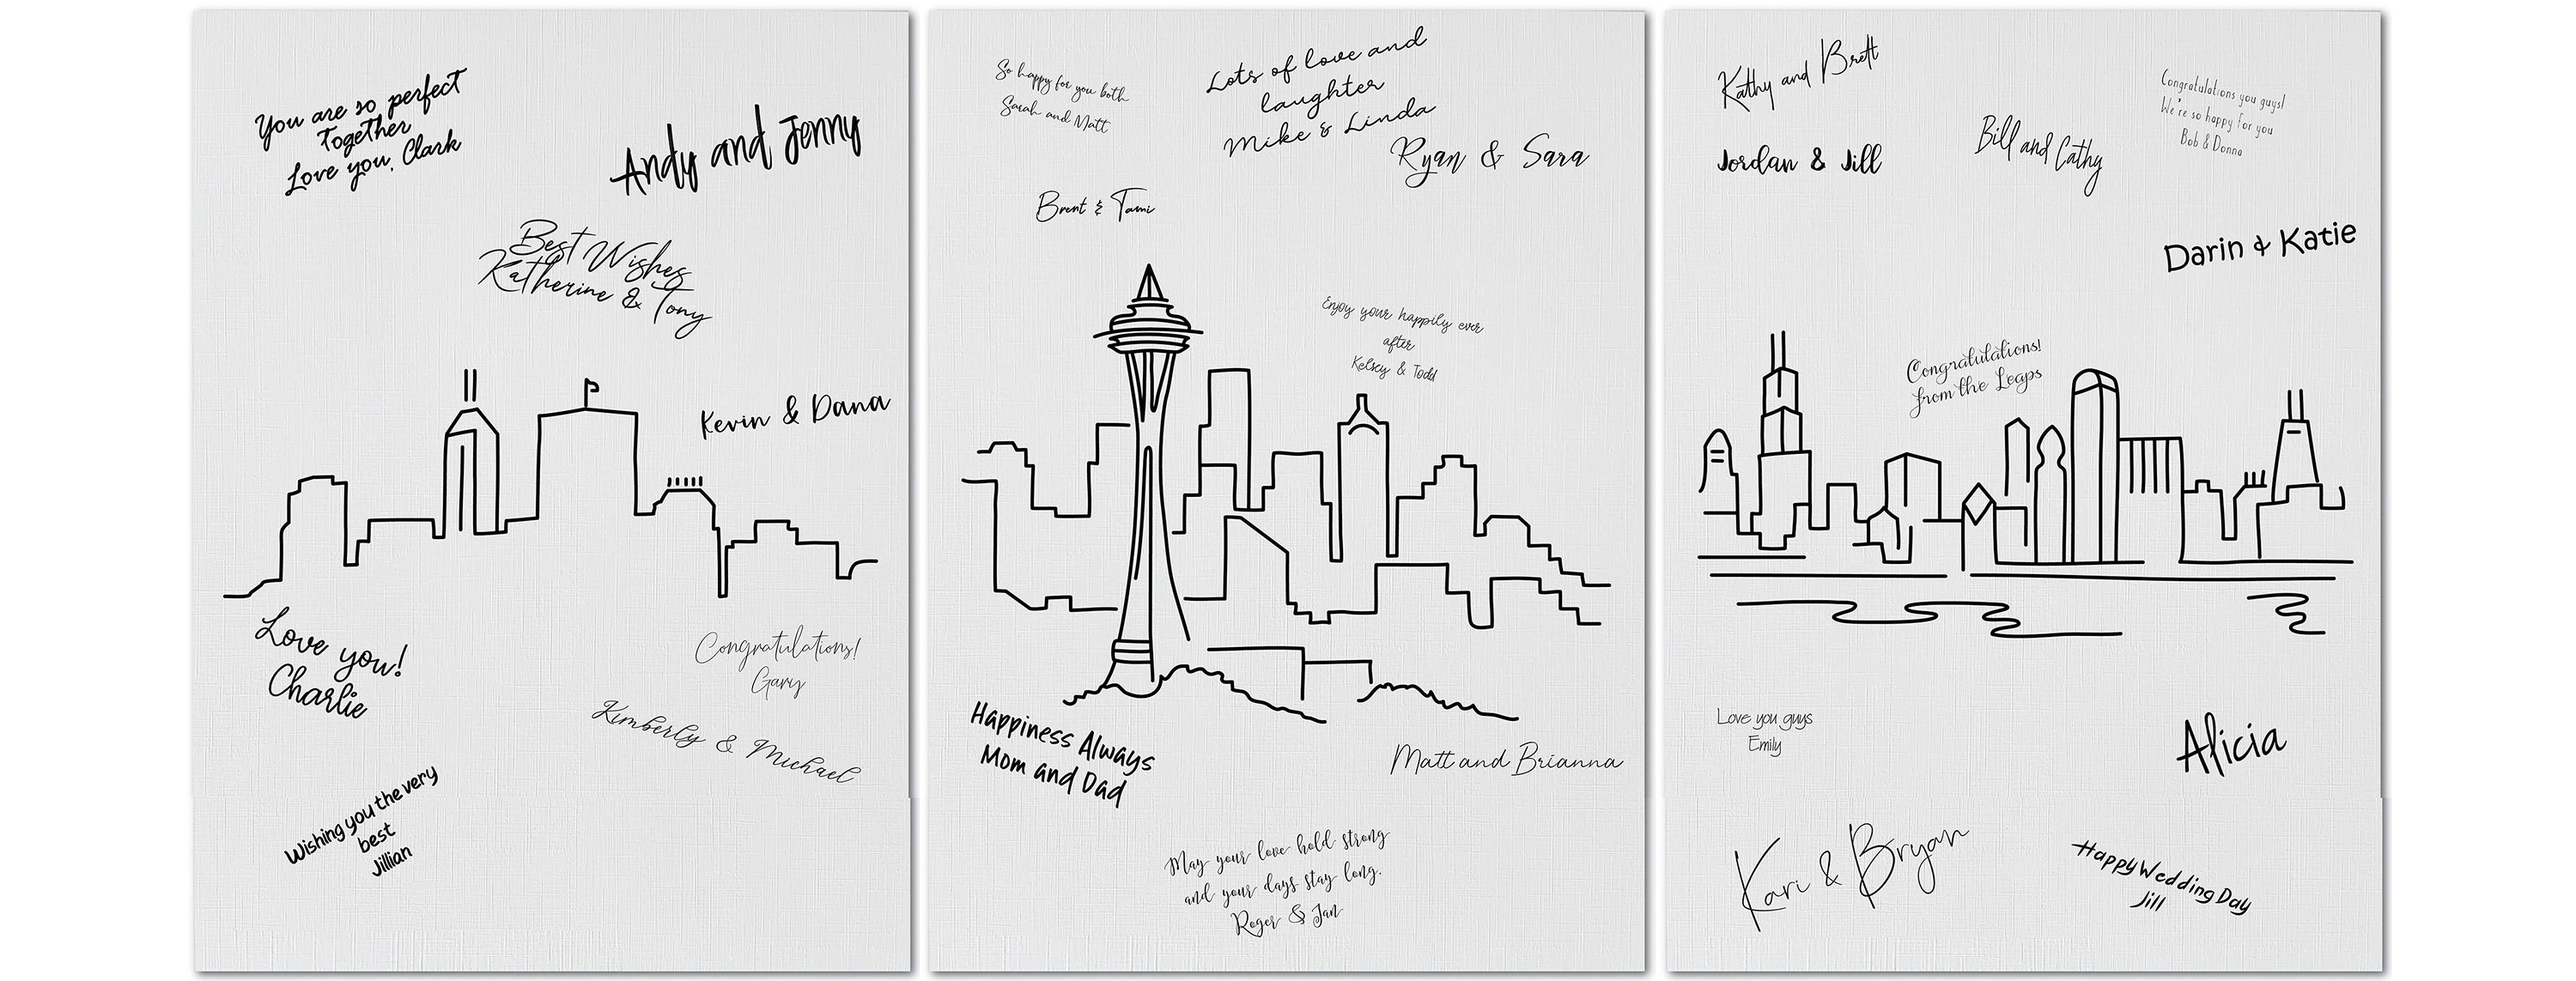 You are so perfect
together
Love you, Clark
Andy and Jenny
Best Wishes
Katherine & Tony
Kevin & Dana
Love you!
Charlie
Congratulations!
Gary
Kimberly & Michael
Wishing you the very
best
Jillian
So happy for you both
Sarah and Matt
Lots of love and
laughter
Mike & Linda
Ryan & Sara
Brent & Tami
Enjoy your happily ever
after
Kelsey & Todd
Happiness Always
Mom and Dad
Matt and Brianna
May your love hold strong
and your days stay long.
Roger & Jan
Kathy and Brett
Congratulations you guys!
We're so happy for you
Bob & Donna
Jordan & Jill
Bill and Cathy
Darin & Katie
Congratulations!
from the Leaps
Love you guys
Emily
Alicia
Kari & Bryan
Happy Wedding Day
Jill